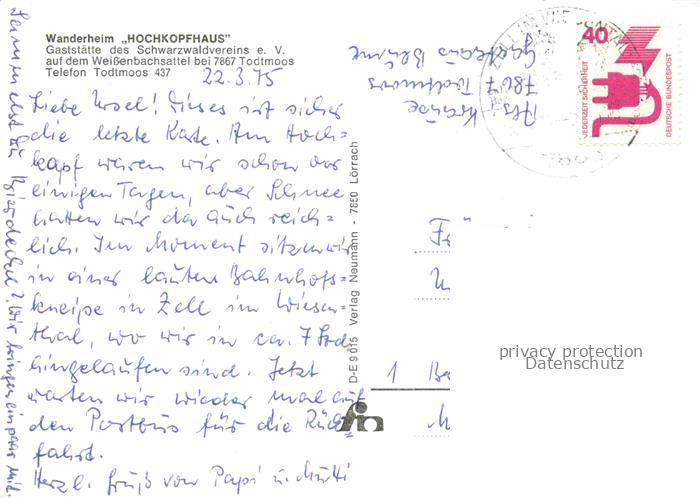 Wanderheim „HOCHKOPFHAUS"
Gaststätte des Schwarzwaldvereins e. V.
auf dem Weißenbachsattel bei 7867 Todtmoos
Telefon Todtmoos 437
22.3.75
Liebe Ursel! Dieses ist sicher
die letzte Karte. Am Hoch=
kopf waren wir schon vor
einigen Tagen, aber Schnee
hatten wir da auch reich=
lich. Im Moment sitzen wir
in einer lauten Bahnhofs=
kneipe in Zell im Wiesen=
thal, wo wir in ca. 7 Std
hingelaufen sind. Jetzt
warten wir wieder mal auf
den Postbus für die Rück=
fahrt.
Herzl. Gruß von Papi u. Mutti
Sammelst Du Bierdeckel? Wir bringen ein paar mit.
D-E 9 015 Verlag Neumann - 7850 Lörrach
fin
Abs. Krause
7867 Todtmoos
Gasthaus Blume
40
JEDERZEIT SICHERHEIT
DEUTSCHE BUNDESPOST
1
privacy protection
Datenschutz